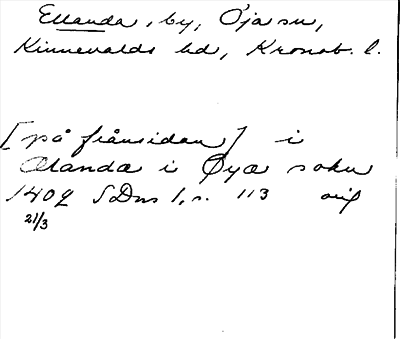 Ellanda, by, Öja sn,
Kinnevalds hd, Kronob. l.
[på frånsidan] i
Ælanda i Øyæ sokn
1409 SDns 1, s. 113 orig
21/3